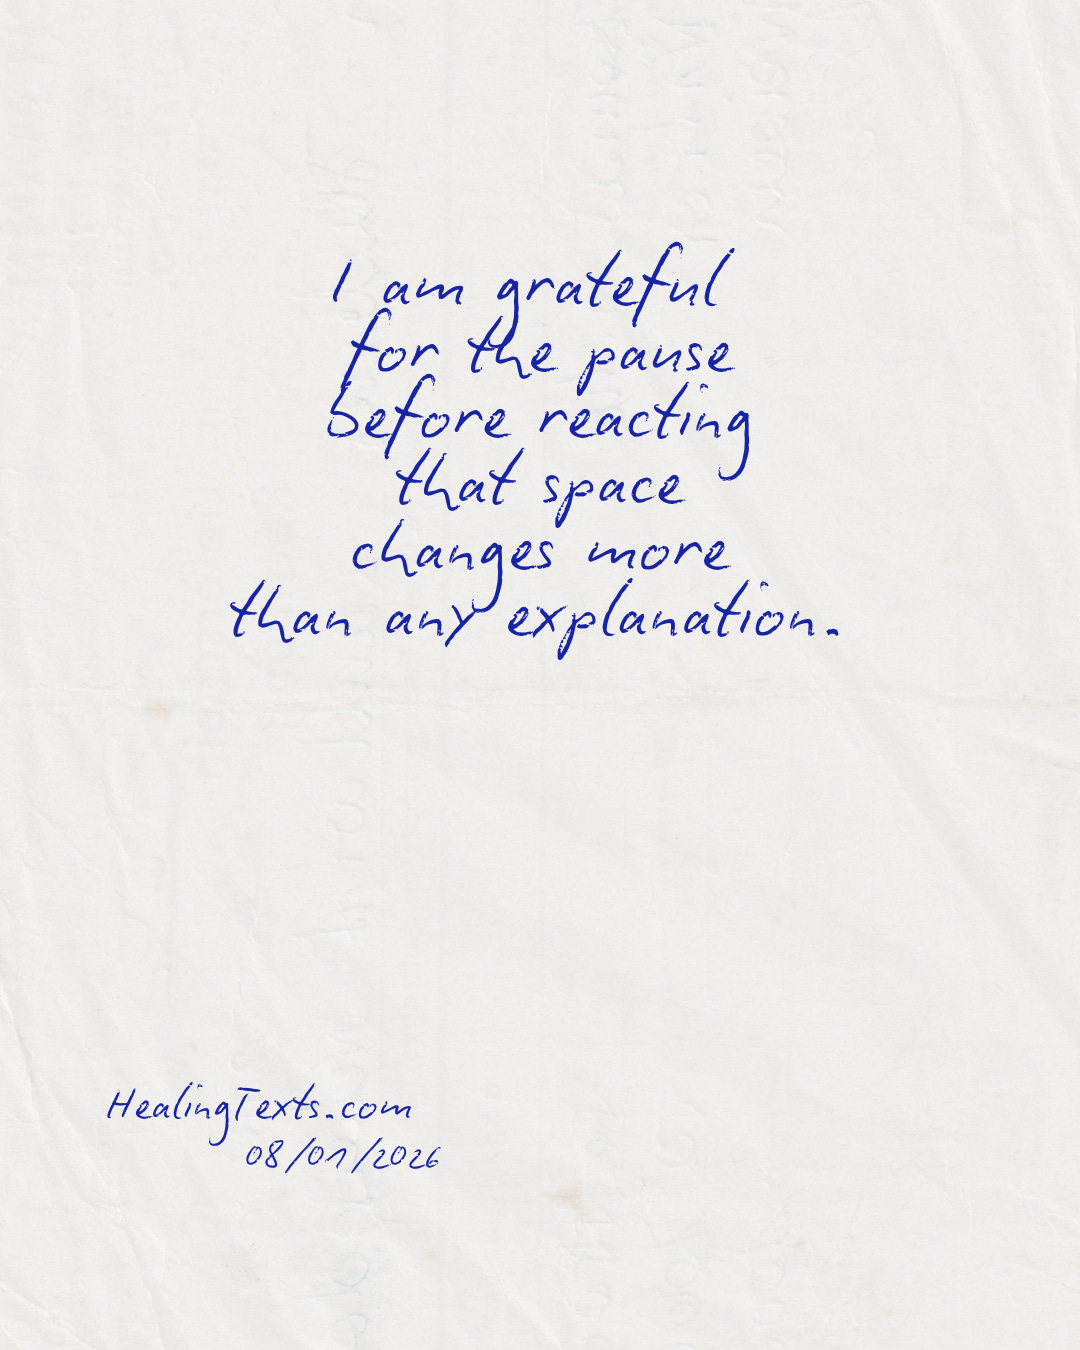 I am grateful
for the pause
before reacting
that space
changes more
than any explanation.
HealingTexts.com
08/01/2026